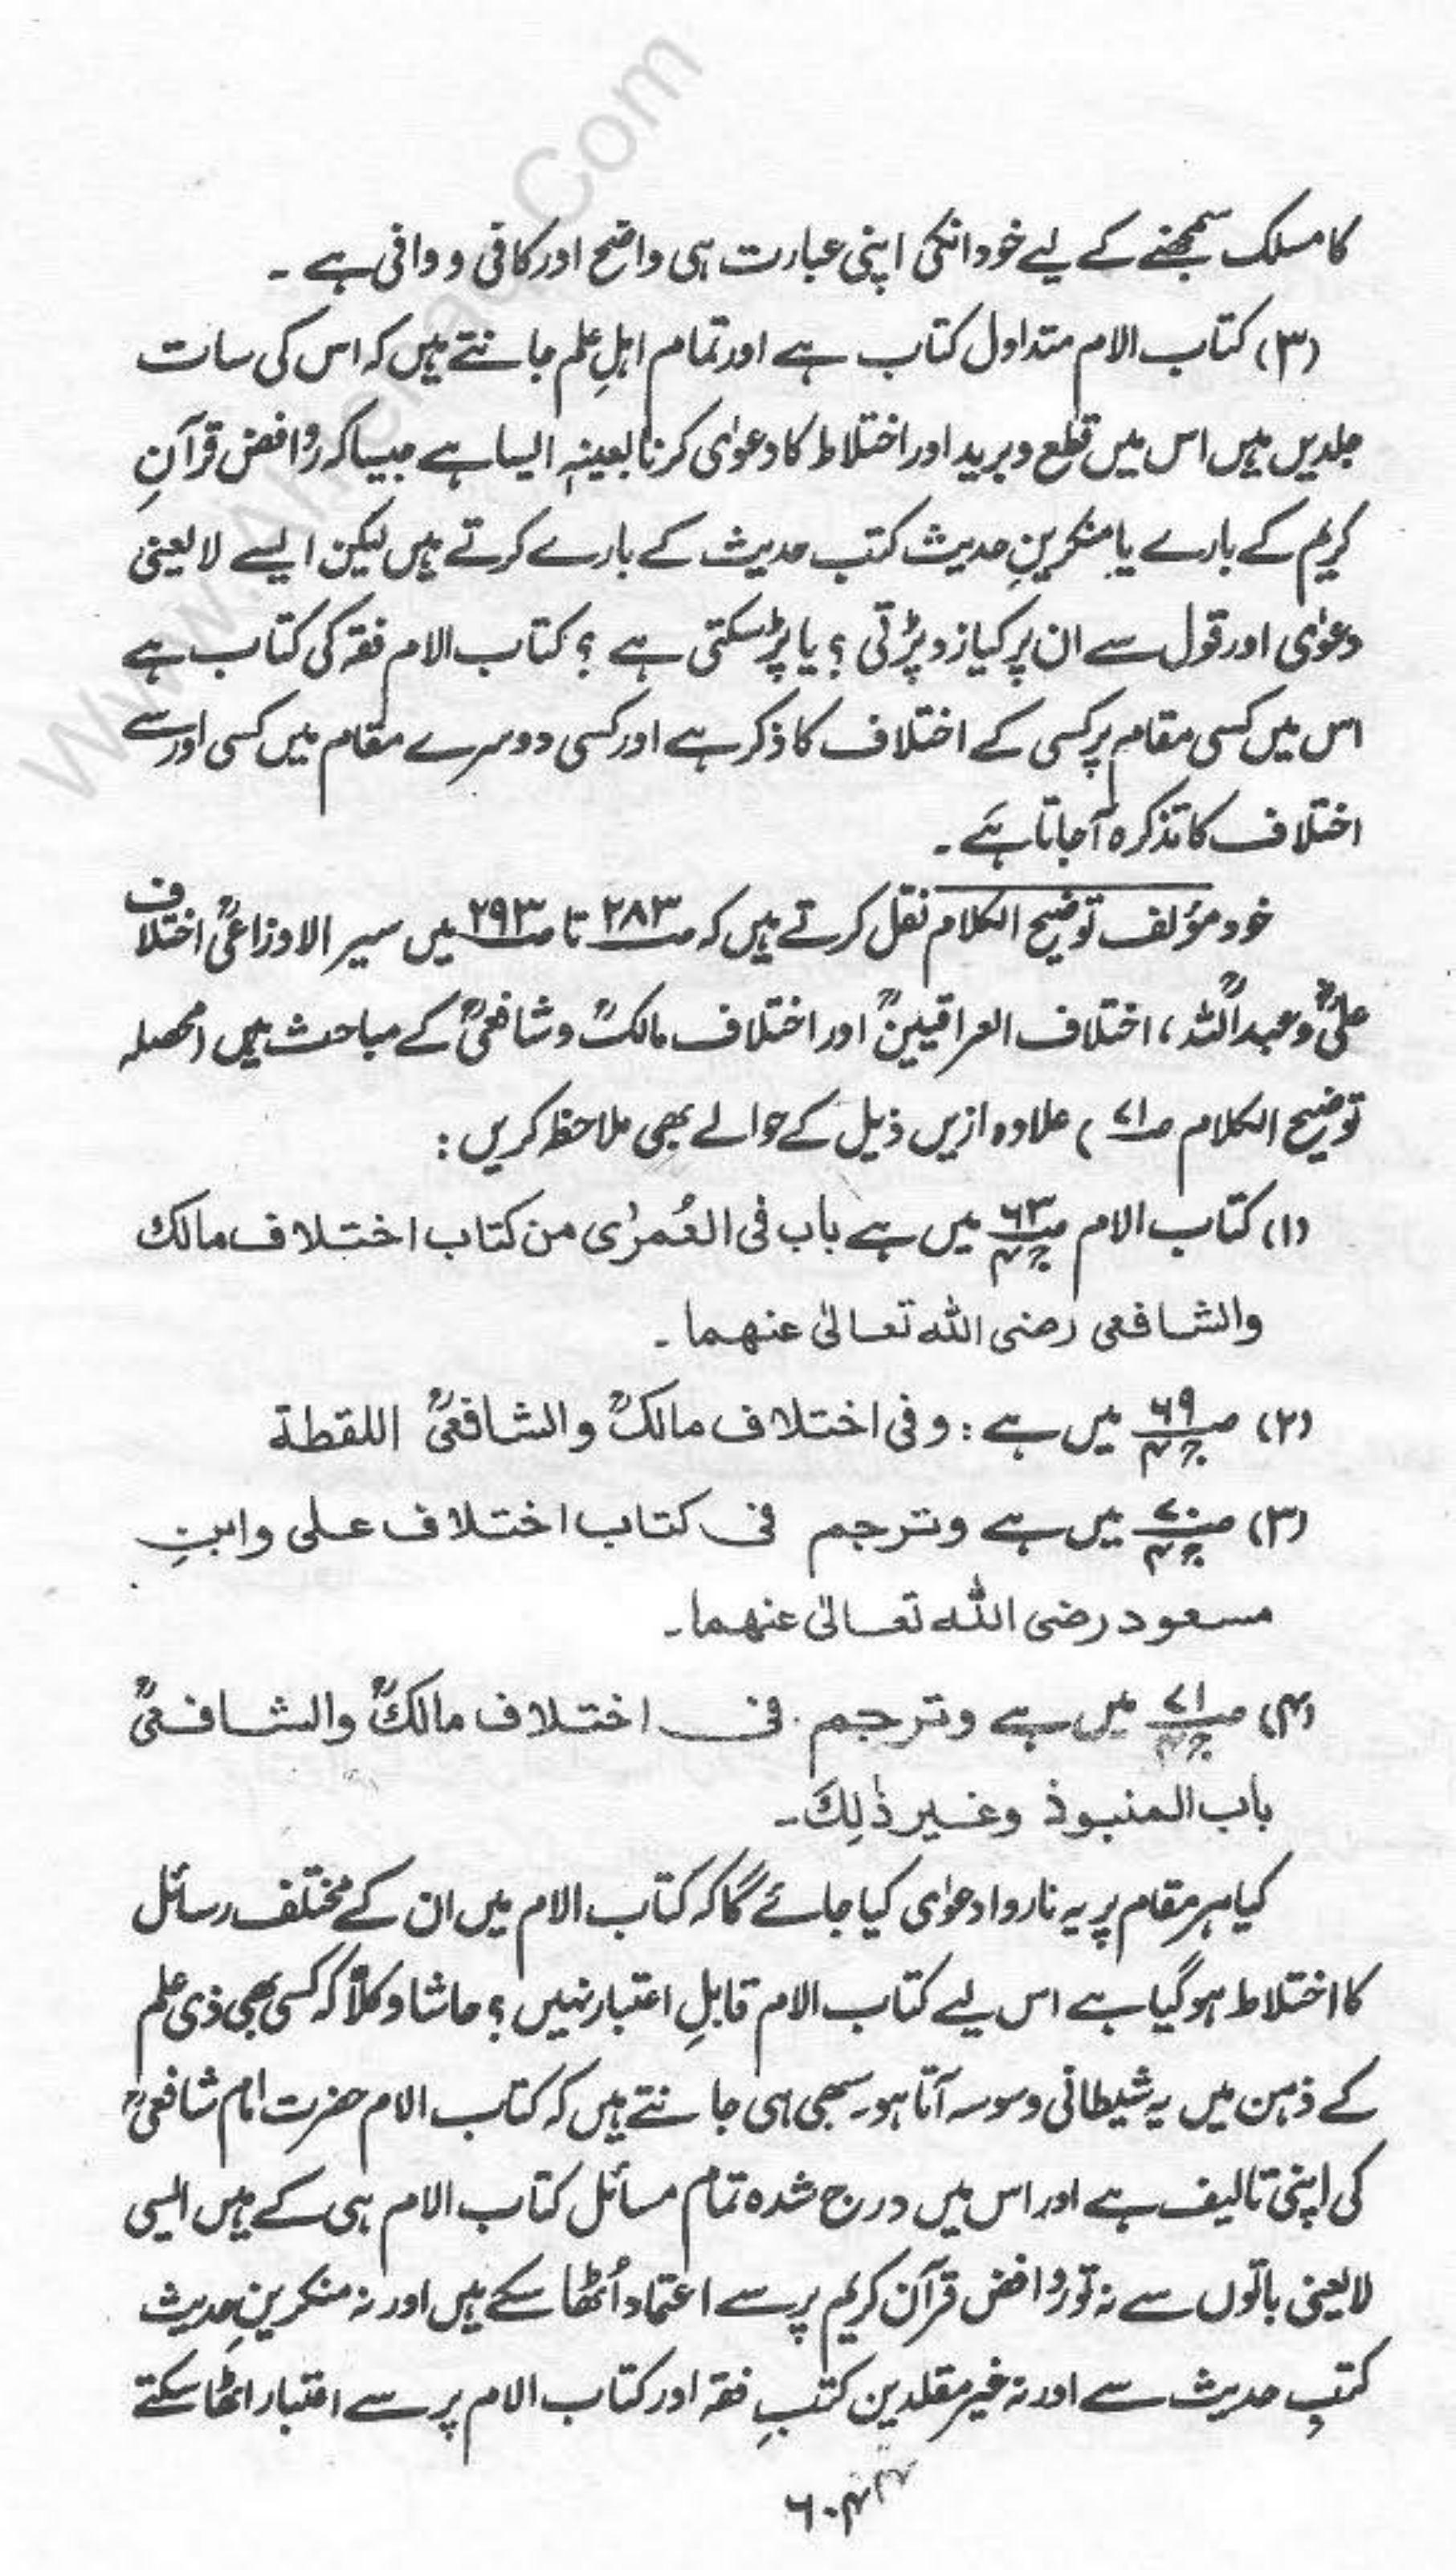 کا مسلک سمجھنے کے لیے خود انکی اپنی عبارت ہی واضح اور کافی و وافی ہے ۔
(۳) کتاب الام متداول کتاب ہے اور تمام اہلِ علم جانتے ہیں کہ اس کی سات
جلدیں ہیں اس میں قطع و برید اور اختلاط کا دعوٰی کرنا بعینہٖ ایسا ہے جیسا کہ روافض قرآنِ
کریم کے بارے یا منکرینِ حدیث کتب حدیث کے بارے کرتے ہیں لیکن ایسے لا یعنی
دعوٰی اور قول سے ان پر کیا زد پڑتی ؟ یا پڑ سکتی ہے ؟ کتاب الام فقہ کی کتاب ہے
اس میں کسی مقام پر کسی کے اختلاف کا ذکر ہے اور کسی دوسرے مقام میں کسی اور سے
اختلاف کا تذکرہ آجاتا ہَے ۔
خود مؤلف توضیح الکلام نقل کرتے ہیں کہ صـ ۲۸۳ تا صـ ۲۹۳ میں سیر الاوزاعیؒ اختلاف
علیؓ و عبداللہؓ ، اختلاف العراقیینؒ اور اختلاف مالکؒ و شافعیؒ کے مباحث ہیں (محصلہ
توضیح الکلام صـ ۷۱ ) علاوہ ازیں ذیل کے حوالے بھی ملاحظہ کریں :
(۱) کتاب الام صـ ۶۳ ج ۴ میں ہے باب فی العُمرٰی من کتاب اختلاف مالک
والشافعی رضی اللہ تعالیٰ عنھما ۔
(۲) صـ ۶۹ ج ۴ میں ہے : وفی اختلاف مالکؒ والشافعیؒ اللقطة
(۳) صـ ۷۰ ج ۴ میں ہے وترجم فی کتاب اختلاف علی وابنِ
مسعود رضی اللہ تعالیٰ عنھما۔
(۴) صـ ۷۱ ج ۴ میں ہے وترجم فی اختلاف مالکؒ والشافعیؒ
باب المنبوذ وغیر ذٰلِكَ۔
کیا ہر مقام پر یہ ناروا دعوٰی کیا جائے گا کہ کتاب الام میں ان کے مختلف رسائل
کا اختلاط ہو گیا ہے اس لیے کتاب الام قابلِ اعتبار نہیں ؟ حاشا و کلاّ کہ کسی بھی ذی علم
کے ذہن میں یہ شیطانی وسوسہ آتا ہو۔ سبھی ہی جانتے ہیں کہ کتاب الام حضرت امام شافعیؒ
کی اپنی تالیف ہے اور اس میں درج شدہ تمام مسائل کتاب الام ہی کے ہیں ایسی
لا یعنی باتوں سے نہ تو روافض قرآن کریم پر سے اعتماد اُٹھا سکے ہیں اور نہ منکرینِ حدیث
کتبِ حدیث سے اور نہ غیر مقلدین کتبِ فقہ اور کتاب الام پر سے اعتبار اٹھا سکتے